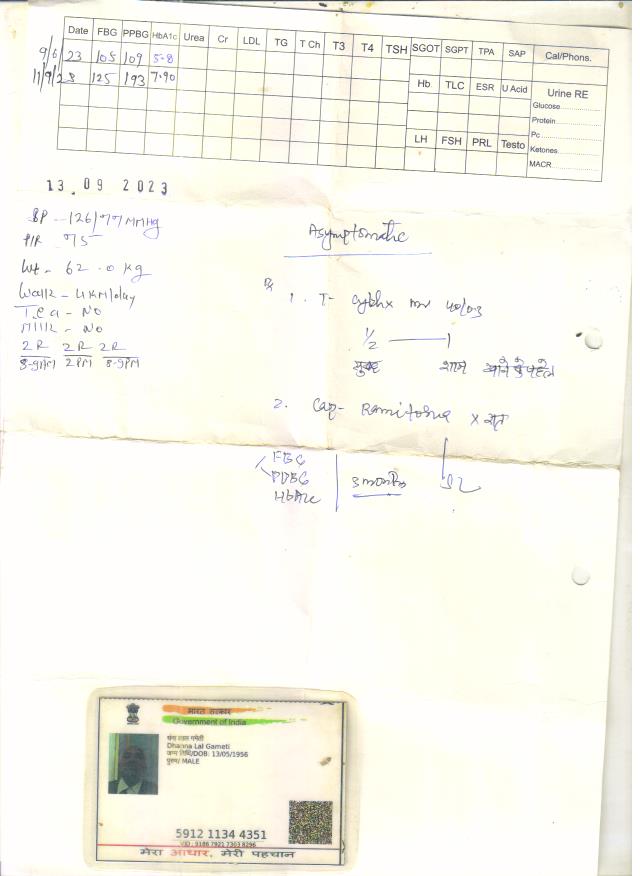 Date FBG PPBG HbA1c Urea Cr LDL TG T Ch T3 T4 TSH SGOT SGPT TPA SAP Cal/Phons.
9/6/23 105 109 5.8
11/9/23 125 193 7.90
Hb. TLC ESR U Acid Urine RE
Glucose
Protein
Pc
LH FSH PRL Testo Ketones
MACR
13.09 2023
BP - 126/77 MMHg
P/R - 75
Wt - 62.0 kg
Walk - 4KM/day
Tea - No
Milk - No
2R 2R 2R
8-9AM 2PM 8-9PM
Asymptomatic
Rx
1. T-
1/2 1
सुबह शाम खाने से पहले
2. Cap-
FBG
PPBG
HbA1c
3 months
भारत सरकार
Government of India
Dhanna Lal Gameti
जन्म तिथि/DOB: 13/05/1956
पुरुष/ MALE
5912 1134 4351
VID: 9186 7921 7303 8296
मेरा आधार, मेरी पहचान